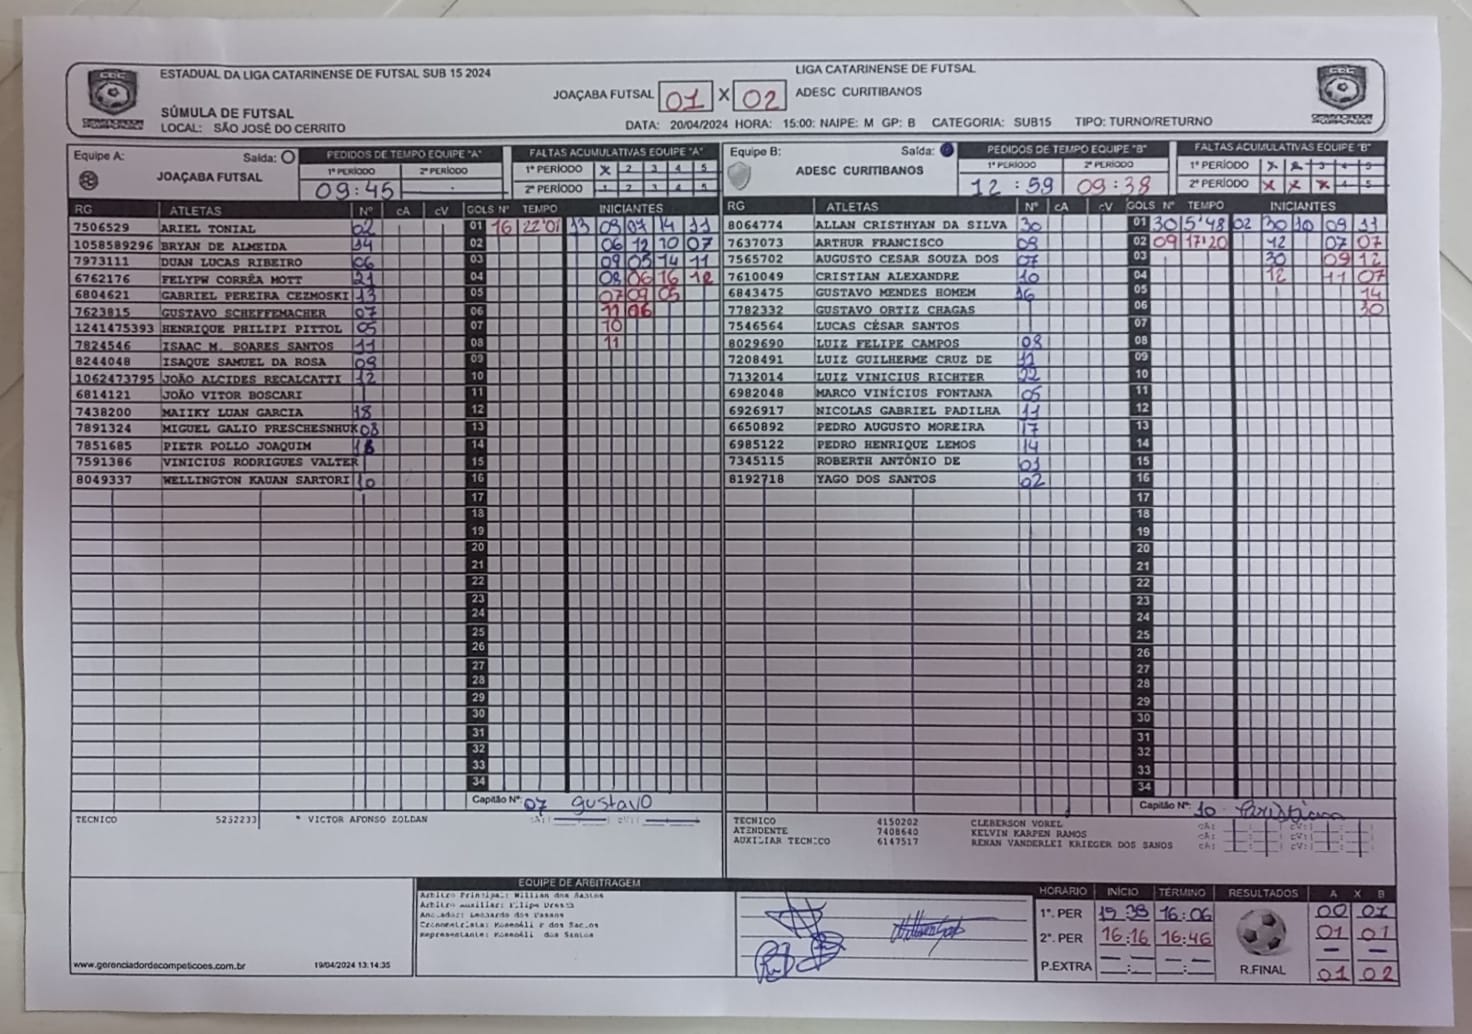 ESTADUAL DA LIGA CATARINENSE DE FUTSAL SUB 15 2024
LIGA CATARINENSE DE FUTSAL
JOAÇABA FUTSAL 01 X 02 ADESC CURITIBANOS
SÚMULA DE FUTSAL
LOCAL: SÃO JOSÉ DO CERRITO
DATA: 20/04/2024 HORA: 15:00: NAIPE: M GP: B CATEGORIA: SUB15 TIPO: TURNO/RETURNO
Equipe A: Saída:
JOAÇABA FUTSAL
PEDIDOS DE TEMPO EQUIPE "A"
1º PERÍODO 2º PERÍODO
09:45
FALTAS ACUMULATIVAS EQUIPE "A"
1º PERÍODO X 2 3 4 5
2º PERÍODO 1 2 3 4 5
RG ATLETAS Nº cA cV GOLS Nº TEMPO INICIANTES
7506529 ARIEL TONIAL 02 01 16 22'01 13 09 07 14 11
1058589296 BRYAN DE ALMEIDA 14 02 06 12 10 07
7973111 DUAN LUCAS RIBEIRO 06 03 09 05 14 11
6762176 FELYPW CORRÊA MOTT 21 04 08 06 16 12
6804621 GABRIEL PEREIRA CEZMOSKI 13 05 07 09 05
7623815 GUSTAVO SCHEFFEMACHER 07 06 11 06
1241475393 HENRIQUE PHILIPI PITTOL 05 07 10
7824546 ISAAC M. SOARES SANTOS 11 08 11
8244048 ISAQUE SAMUEL DA ROSA 09 09
1062473795 JOÃO ALCIDES RECALCATTI 12 10
6814121 JOÃO VITOR BOSCARI 11
7438200 MAIIKY LUAN GARCIA 18 12
7891324 MIGUEL GALIO PRESCHESNHUK 08 13
7851685 PIETR POLLO JOAQUIM 14
7591386 VINICIUS RODRIGUES VALTER 15
8049337 WELLINGTON KAUAN SARTORI 10 16
17
18
19
20
21
22
23
24
25
26
27
28
29
30
31
32
33
34
Capitão Nº: 07 gustavo
TECNICO 5232233 * VICTOR AFONSO ZOLDAN cA: cV:
Equipe B: Saída:
ADESC CURITIBANOS
PEDIDOS DE TEMPO EQUIPE "B"
1º PERÍODO 2º PERÍODO
12:59 09:38
FALTAS ACUMULATIVAS EQUIPE "B"
1º PERÍODO X 2 3 4 5
2º PERÍODO X X X 4 5
RG ATLETAS Nº cA cV GOLS Nº TEMPO INICIANTES
8064774 ALLAN CRISTHYAN DA SILVA 30 01 30 5'48 02 30 10 09 11
7637073 ARTHUR FRANCISCO 09 02 09 17'20 12 07 07
7565702 AUGUSTO CESAR SOUZA DOS 07 03 30 09 12
7610049 CRISTIAN ALEXANDRE 10 04 12 11 07
6843475 GUSTAVO MENDES HOMEM 16 05 14
7782332 GUSTAVO ORTIZ CHAGAS 06 30
7546564 LUCAS CÉSAR SANTOS 07
8029690 LUIZ FELIPE CAMPOS 08 08
7208491 LUIZ GUILHERME CRUZ DE 12 09
7132014 LUIZ VINICIUS RICHTER 22 10
6982048 MARCO VINÍCIUS FONTANA 05 11
6926917 NICOLAS GABRIEL PADILHA 11 12
6650892 PEDRO AUGUSTO MOREIRA 17 13
6985122 PEDRO HENRIQUE LEMOS 14 14
7345115 ROBERTH ANTÔNIO DE 01 15
8192718 YAGO DOS SANTOS 02 16
17
18
19
20
21
22
23
24
25
26
27
28
29
30
31
32
33
34
Capitão Nº: 10 Cristian
TECNICO 4150202 CLEBERSON VOREL cA: cV:
ATENDENTE 7408640 KELVIN KARPEN RAMOS cA: cV:
AUXILIAR TECNICO 6147517 RENAN VANDERLEI KRIEGER DOS SANOS cA: cV:
EQUIPE DE ARBITRAGEM
Arbitro Principal: Willian dos Santos
Arbitro Auxiliar: Filipe
Anotador: Leonardo dos Passos
Cronometrista: dos Santos
Representante: dos Santos
HORÁRIO INÍCIO TÉRMINO RESULTADOS A X B
1º. PER 15 38 16:06 00 01
2º. PER 16:16 16:46 01 01
P.EXTRA R.FINAL 01 02
www.gerenciadordecompeticoes.com.br 19/04/2024 13:14:35